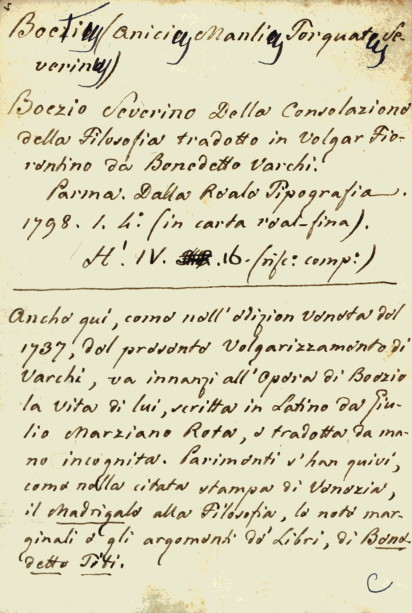 Boezius (Anicius Manlius Torquatus Se-
verinus)
Boezio Severino Della Consolazione
della Filosofia tradotto in Volgar Fio-
rentino da Benedetto Varchi.
Parma. Dalla Reale Tipografia.
1798. 1. 4.º (in carta real-fina).
H.¹ IV. 16. (rifc.º comp.º)
Anche qui, come nell' edizion veneta del
1737, del presente Volgarizzamento di
Varchi, va innanzi all' Opera di Boezio
la vita di lui, scritta in Latino da Giu-
lio Marziano Rota, e tradotta da ma-
no incognita. Parimenti s' han quivi,
come nella citata stampa di Venezia,
il Madrigale alla Filosofia, le note mar-
ginali e gli argomenti de' Libri, di Bene-
detto Titi.
C